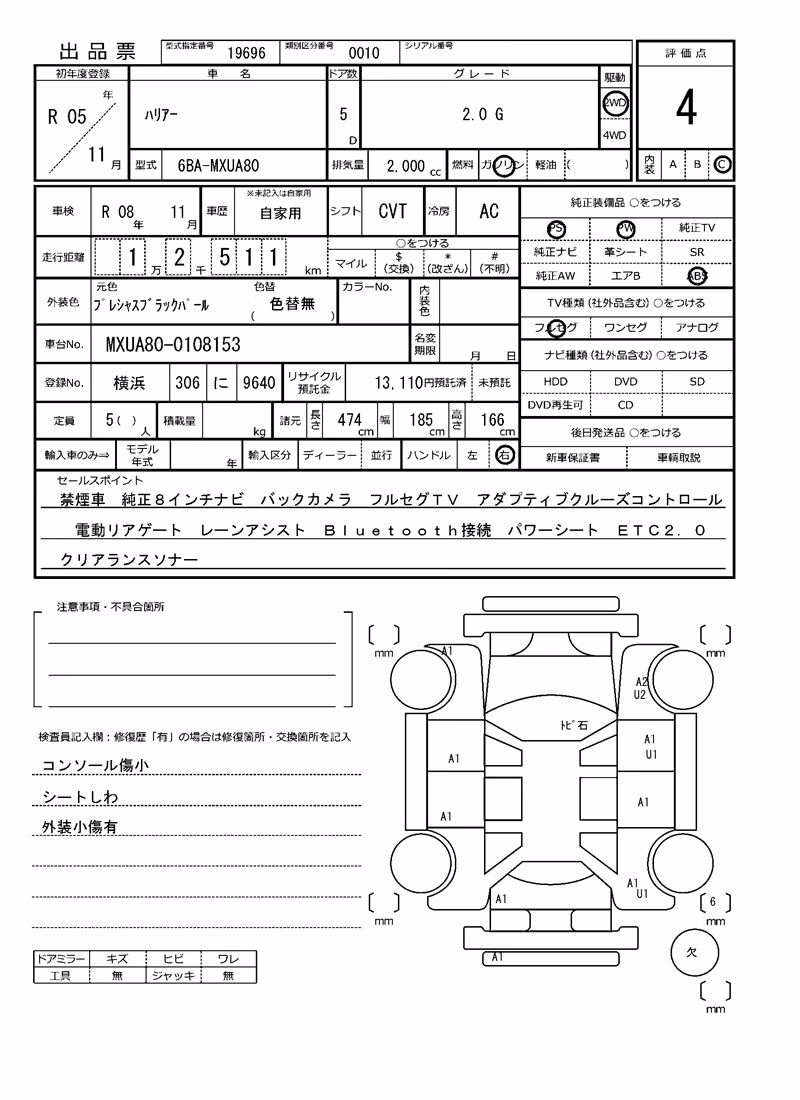 出品票 型式指定番号 19696 類別区分番号 0010 シリアル番号
評価点
初年度登録 車名 ドア数 グレード 駆動
R 05 年 11 月 ﾊﾘｱｰ 5 D 2.0 G 2WD 4WD
4
型式 6BA-MXUA80 排気量 2,000 cc 燃料 ガソリン 軽油 ( ) 内装 A B C
車検 R 08 年 11 月 車歴 ※未記入は自家用 自家用 シフト CVT 冷房 AC
走行距離 1 万 2 千 5 1 1 km ○をつける マイル $(交換) *(改ざん) #(不明)
外装色 元色 ﾌﾟﾚｼｬｽﾌﾞﾗｯｸﾊﾟｰﾙ 色替 ( 色替無 ) カラーNo. 内装色
車台No. MXUA80-0108153 名変期限 月 日
登録No. 横浜 306 に 9640 リサイクル預託金 13,110円預託済 未預託
定員 5( )人 積載量 kg 諸元 長さ 474 cm 幅 185 cm 高さ 166 cm
輸入車のみ⇒ モデル年式 年 輸入区分 ディーラー 並行 ハンドル 左 右
純正装備品 ○をつける
PS PW 純正TV
純正ナビ 革シート SR
純正AW エアB ABS
TV種類(社外品含む)○をつける
フルセグ ワンセグ アナログ
ナビ種類(社外品含む)○をつける
HDD DVD SD
DVD再生可 CD
後日発送品 ○をつける
新車保証書 車輌取説
セールスポイント
禁煙車 純正8インチナビ バックカメラ フルセグTV アダプティブクルーズコントロール
電動リアゲート レーンアシスト Bluetooth接続 パワーシート ETC2.0
クリアランスソナー
注意事項・不具合箇所
検査員記入欄:修復歴「有」の場合は修復箇所・交換箇所を記入
コンソール傷小
シートしわ
外装小傷有
ドアミラー キズ ヒビ ワレ
工具 無 ジャッキ 無
mm mm
A1
A2
U2
ﾄﾋﾞ石
A1
A1
U1
A1
A1
A1
U1
A1
6
mm mm
A1
欠
mm